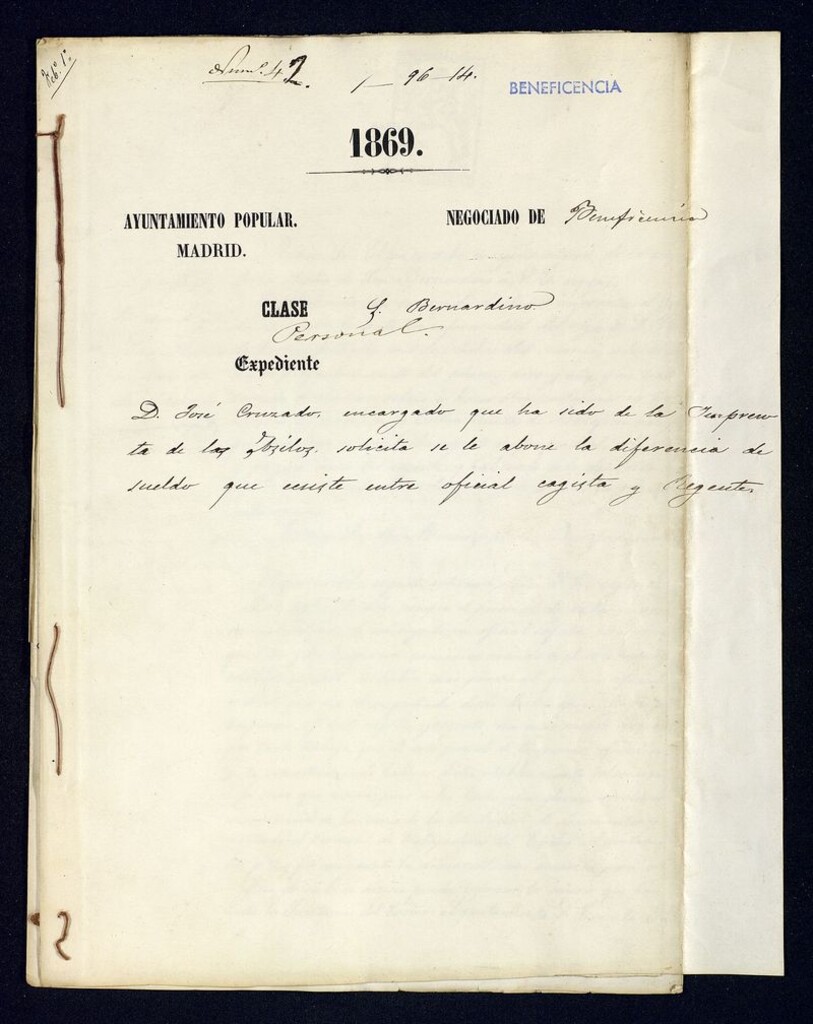 Feb.º 1º
Num.º 42.
1 — 96 — 14.
BENEFICENCIA
1869.
AYUNTAMIENTO POPULAR.
MADRID.
NEGOCIADO DE Beneficencia
CLASE S. Bernardino
Personal.
Expediente
D. José Cruzado, encargado que ha sido de la Impren
ta de los Asilos, solicita se le abone la diferencia de
sueldo que ecsiste entre oficial cagista y Regente.